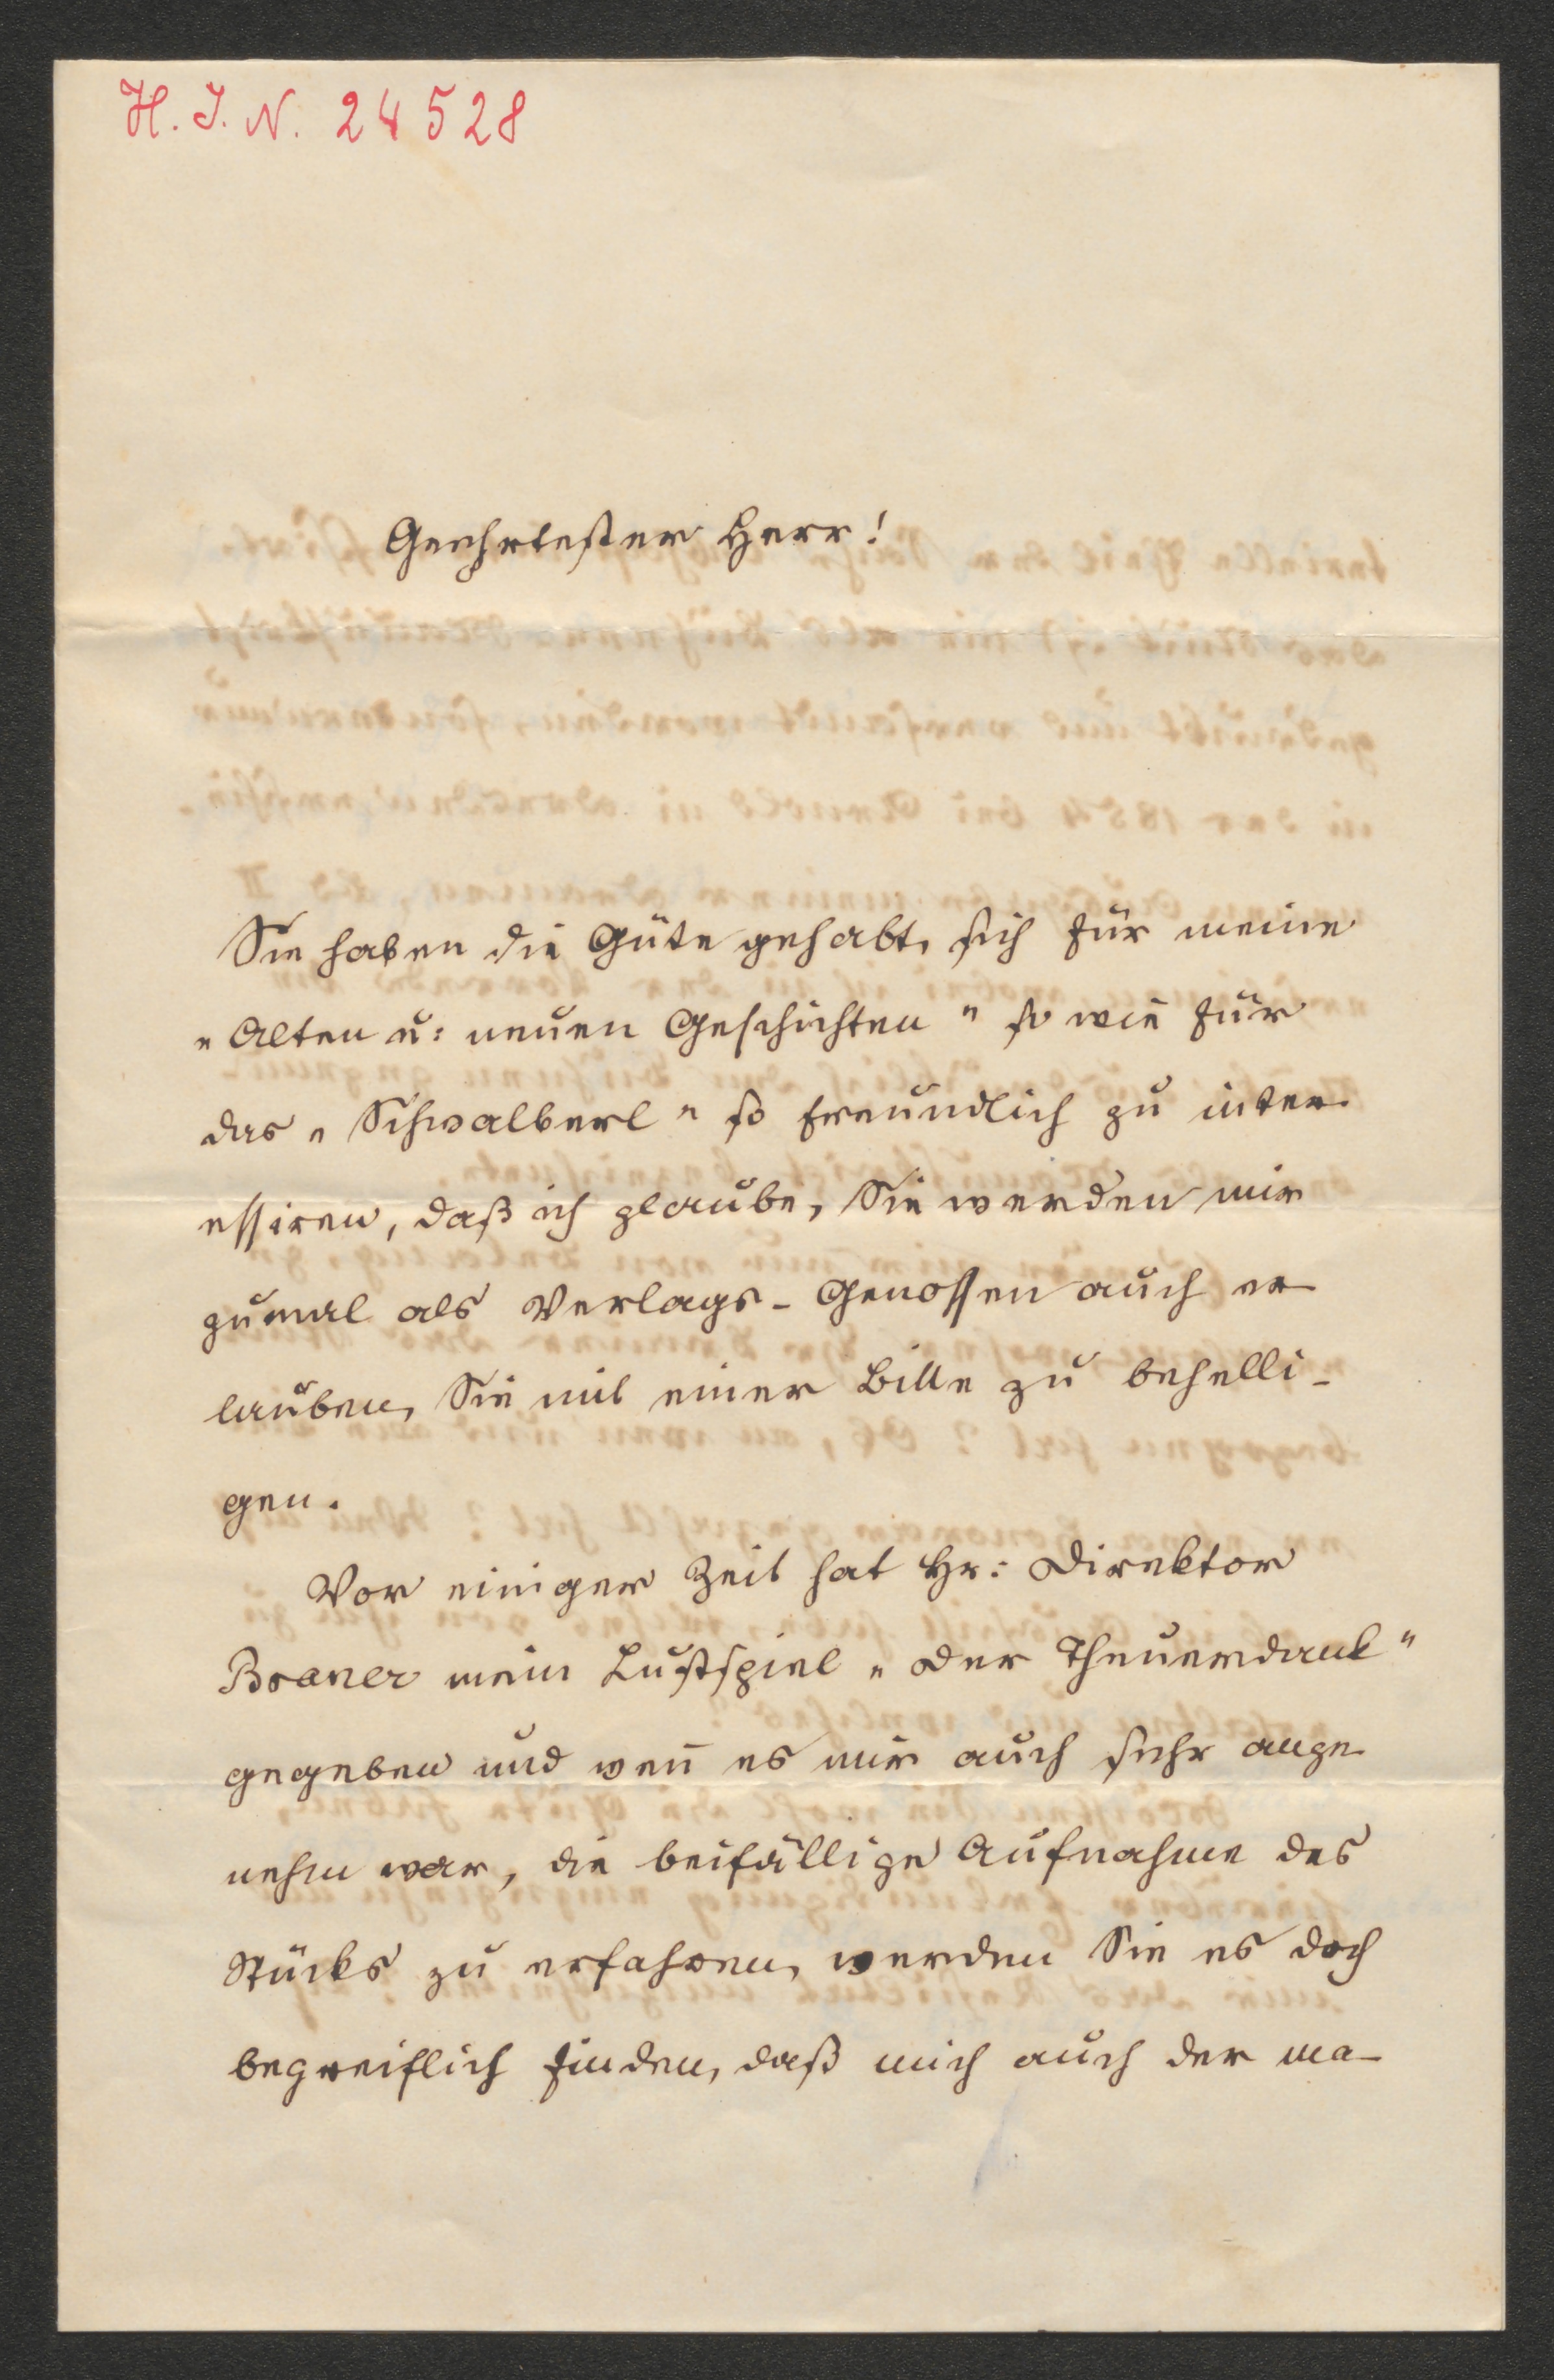 H. I. N. 24528
Geehrtester Herr!
Sie haben die Güte gehabt, sich für meine
„Alten u: neuen Geschichten" so wie für
das „Schwalberl" so freundlich zu inter-
essiren, daß ich glaube, Sie werden mir
zumal als Verlags-Genossen auch er-
lauben, Sie mit einer Bitte zu behelli-
gen.
Vor einiger Zeit hat Hr: Direktor
mein Lustspiel „der Theuerdank"
gegeben und wen̄ es mir auch sehr ange-
nehm war, die beifällige Aufnahme des
Stücks zu erfahren, werden Sie es doch
begreiflich finden, daß mich auch der ma-